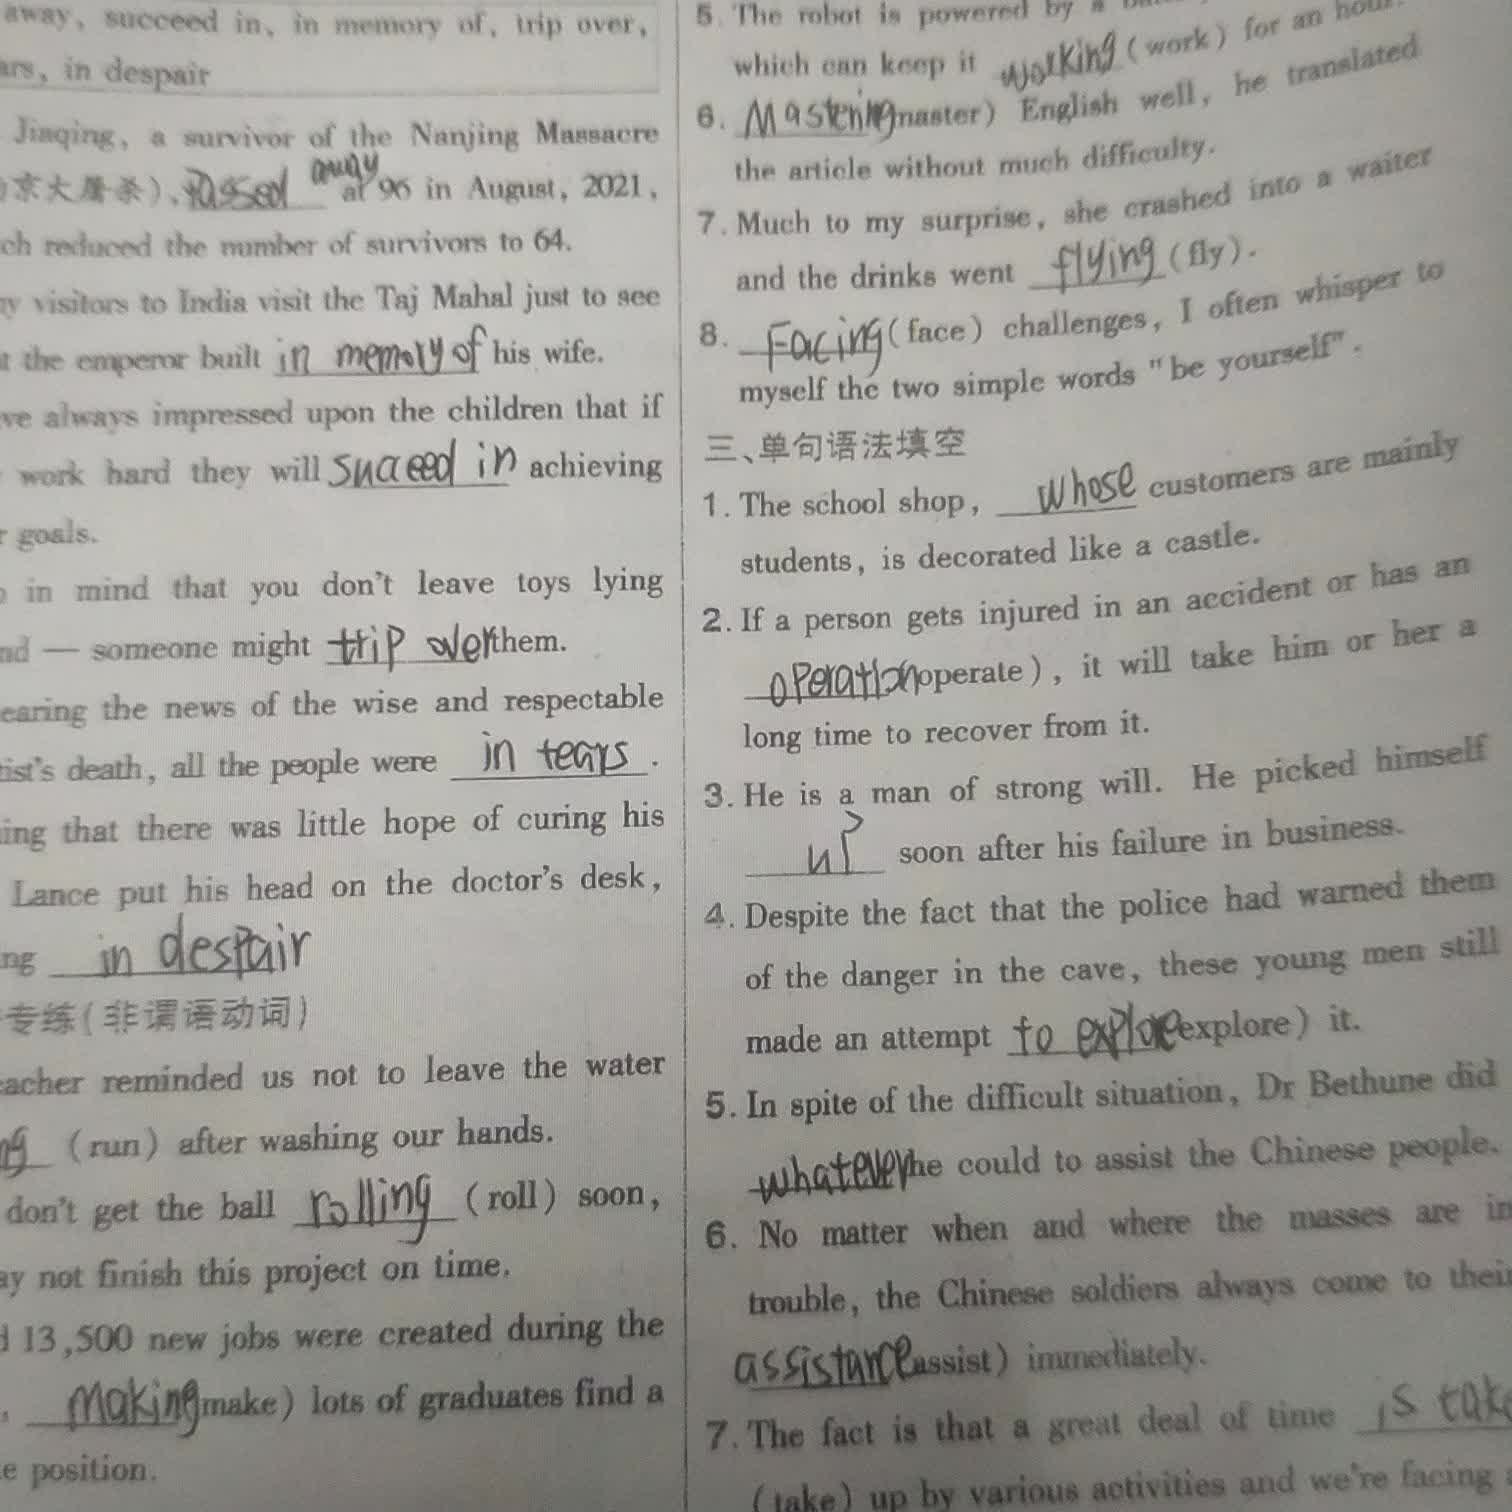 away, succeed in, in memory of, trip over,
in despair
Jiaqing, a survivor of the Nanjing Massacre
京大屠杀), passed away at 96 in August, 2021,
reduced the number of survivors to 64.
visitors to India visit the Taj Mahal just to see
the emperor built in memory of his wife.
always impressed upon the children that if
work hard they will succeed in achieving
goals.
in mind that you don't leave toys lying
— someone might trip over them.
the news of the wise and respectable
death, all the people were in tears.
that there was little hope of curing his
Lance put his head on the doctor's desk,
in despair
专练(非谓语动词)
reminded us not to leave the water
(run) after washing our hands.
don't get the ball rolling (roll) soon,
not finish this project on time.
13,500 new jobs were created during the
, making make) lots of graduates find a
position.
5. The robot is powered by a
which can keep it working (work) for an hour.
6. Mastering master) English well, he translated
the article without much difficulty.
7. Much to my surprise, she crashed into a waiter
and the drinks went flying (fly).
8. Facing (face) challenges, I often whisper to
myself the two simple words "be yourself".
三、单句语法填空
1. The school shop, whose customers are mainly
students, is decorated like a castle.
2. If a person gets injured in an accident or has an
operation operate), it will take him or her a
long time to recover from it.
3. He is a man of strong will. He picked himself
up soon after his failure in business.
4. Despite the fact that the police had warned them
of the danger in the cave, these young men still
made an attempt to explore explore) it.
5. In spite of the difficult situation, Dr Bethune did
whatever he could to assist the Chinese people.
6. No matter when and where the masses are in
trouble, the Chinese soldiers always come to their
assistance assist) immediately.
7. The fact is that a great deal of time is
(take) up by various activities and we're facing